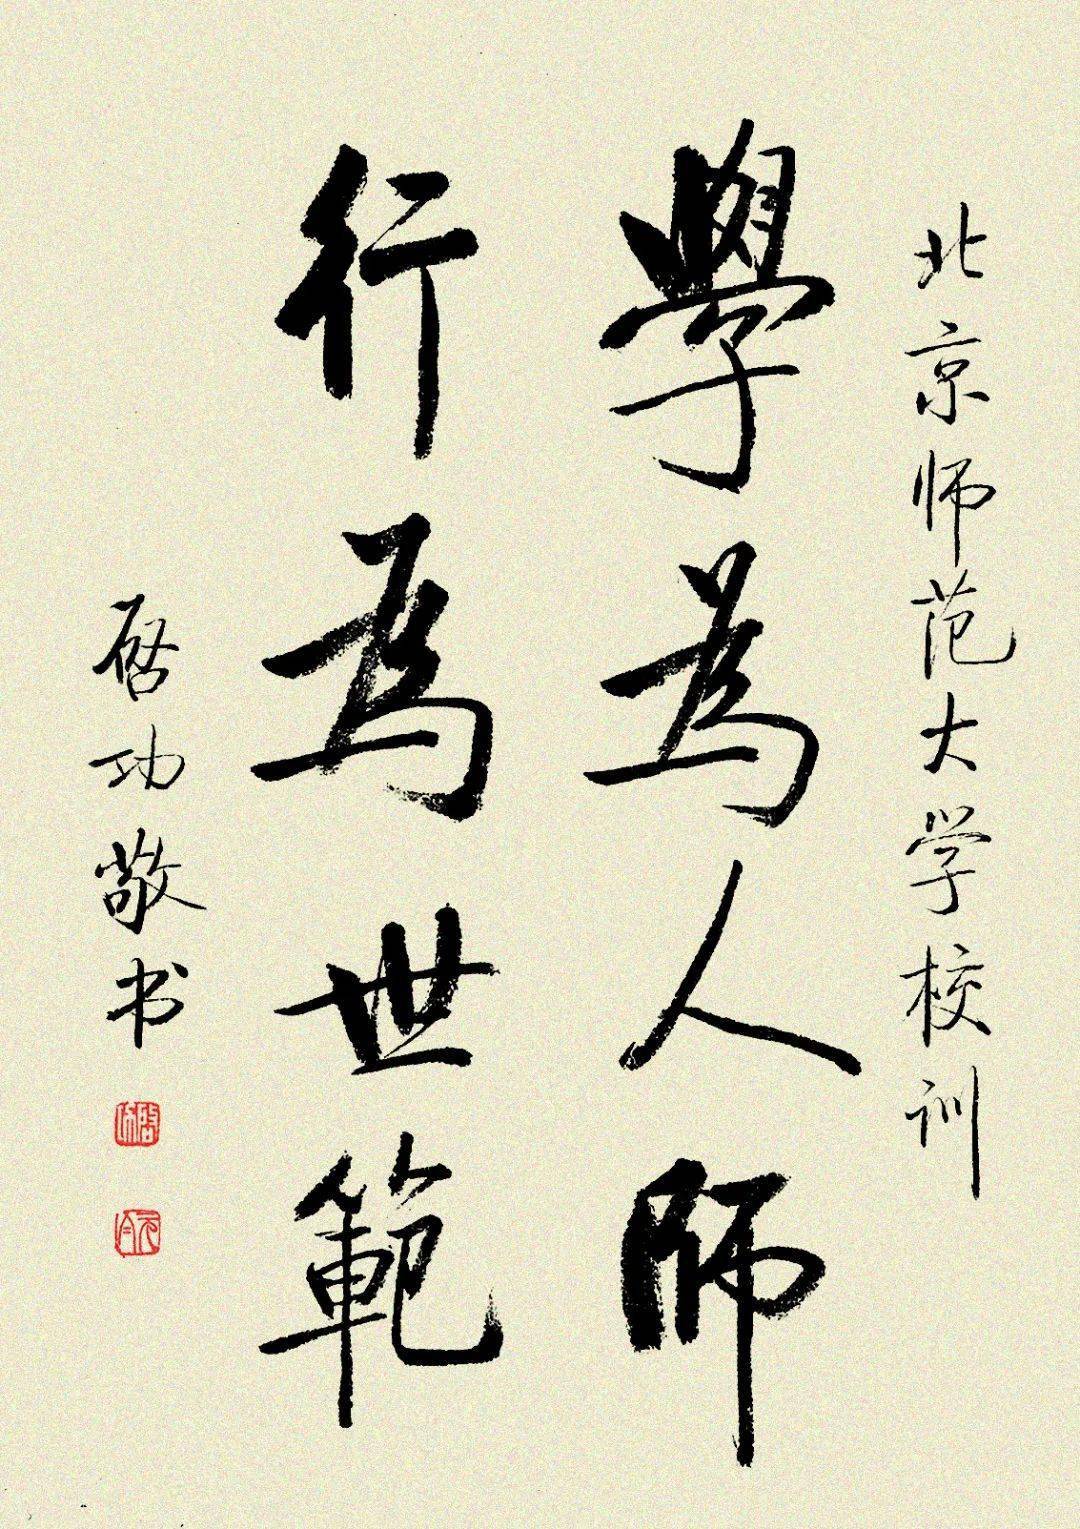 北京师范大学校训
學爲人师
行爲世範
启功敬书